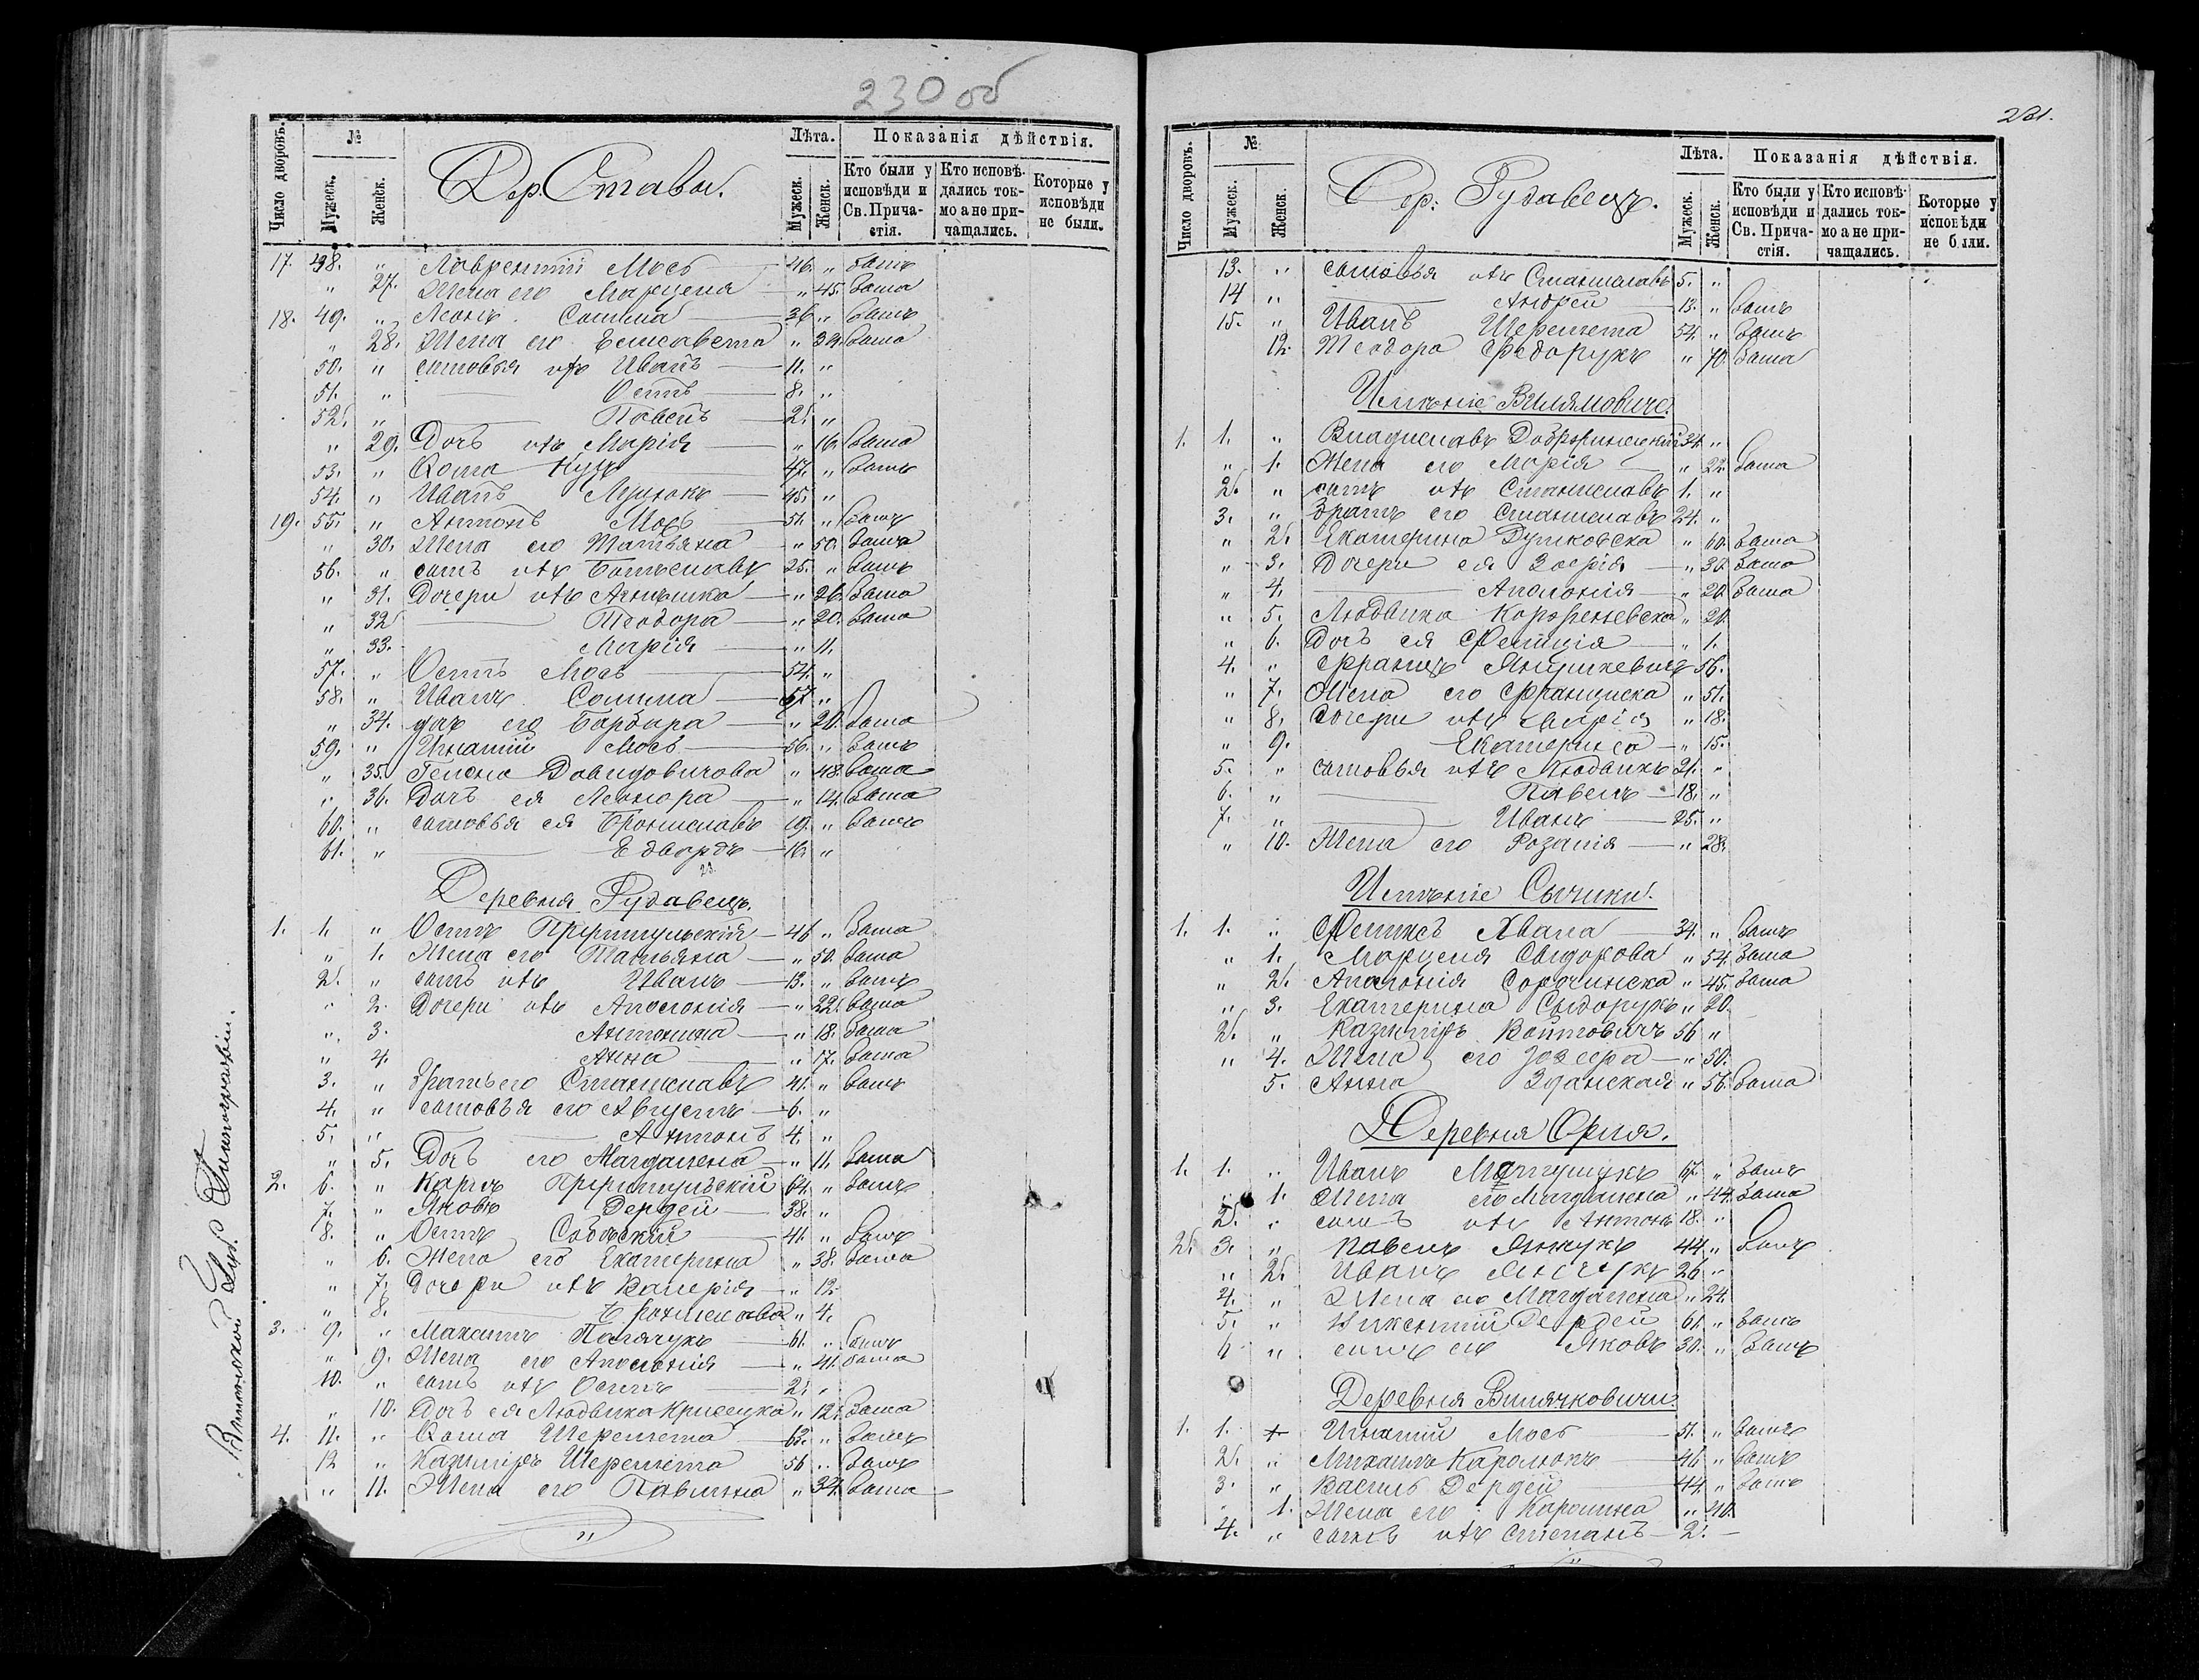 230 об
Число дворовъ. № Лѣта. Показанія дѣйствія.
Мужеск. Женск. Дер. Ставы. Мужеск. Женск. Кто были у исповѣди и Св. Причастія. Кто исповѣдались токмо а не причащались. Которые у исповѣди не были.
17. 48. " Лаврентій Мось 46. " былъ
" 27. Жена его Марцеля " 45. была
18. 49. " Леонъ 36 " былъ
" 28. Жена его Елисавета " была
50. " сыновья ихъ Иванъ 11. "
51. " Осипъ 8. "
52. " Павелъ 2. "
" 29. Дочь ихъ Марія " 16. была
53. " Ѳома 47. " былъ
54. " Иванъ 45. "
19. 55. " Антонъ Мось 51. " былъ
" 30. Жена его Татьяна " 50. была
56. " сынъ ихъ Болеславъ 25. " былъ
" 31. Дочери ихъ Агнешка " 26. была
" 32 Теодора " 20. была
" 33. Марія " 11.
57. " Осипъ Мось 54. "
58. " Иванъ 57 "
" 34. доч его Барбара " 20. была
59. " Игнатій Мось 56. " былъ
" 35. Гелена Давидовичова " 48. была
" 36. Дочь ея Леонора " 14. была
60. " сыновья ея Брониславъ 19. " былъ
61. " Едвардъ 16. "
Деревня Рудавецъ.
1. 1. " Осипъ 46 " была
" 1. Жена его Татьяна " 50. была
2. " сынъ ихъ Иванъ 13. " былъ
" 2. Дочери ихъ Аполонія " 22. была
" 3. Антонина " 18. была
" 4. Анна " 17. была
3. " Братъ его Станиславъ 41. " былъ
4. " сыновья его Августъ 6. "
5. " Антонъ 4. "
" 5. Дочь его Магдалена " 11. была
2. 6. " Карлъ 64. " былъ
7. " Яковъ Дердей 38. "
8. " Осипъ 41. " былъ
" 6. Жена его Екатерина " 38. была
" 7. Дочери ихъ Валерія " 12
" 8. Бронислава " 4.
3. 9. " Михаилъ Полячукъ 61. " былъ
" 9. Жена его Аполонія " 41. была
10. " сынъ ихъ Осипъ 2. "
" 10. Дочь ея Людвика " 12. была
4. 11. " Ѳома Шереметa 63. " былъ
12 " Казиміръ Шеремета 56 " былъ
" 11. Жена его Павлина " 34. была
Литовской Дух. Типографіи.
231.
Число дворовъ. № Лѣта. Показанія дѣйствія.
Мужеск. Женск. Дер: Рудавецъ. Мужеск. Женск. Кто были у исповѣди и Св. Причастія. Кто исповѣдались токмо а не причащались. Которые у исповѣди не были.
13. " сыновья ихъ Станиславъ 5. "
14 " Андрей 13. " былъ
15. " Иванъ Шеремета 54. " былъ
12. Теодора Федорукъ " 70. была
Имѣніе Вилямовиче.
1. 1. " Владиславъ 34. "
" 1. Жена его Марія " 22. была
2. " сынъ ихъ Станиславъ 1. "
3. " Братъ его Станиславъ 24. "
" 2. Екатерина " 60. была
" 3. Дочери ея Зофія " 30. была
" 4. Аполонія " 20. была
" 5. Людвика " 20.
" 6. Дочь ея Фелиція " 1.
4. " Францъ 56.
" 7. Жена его Франциска " 51.
" 8. Дочери ихъ Марія " 18.
" 9. Екатерина " 15.
5. " сыновья ихъ Людвикъ 21. "
6. " Павелъ 18. "
7. " Иванъ 25. "
" 10. Жена его Розалія " 28.
Имѣніе Сычики.
1. 1. " Феликсъ Хвала 34. " былъ
" 1. Марцеля Сидорова " 54. была
" 2. Аполонія Сорочинска " 45. была
" 3. Екатерина Сидорукъ " 20.
2. " Казиміръ Войтовичъ 56 "
" 4. Жена его " 50.
5. Анна Зданская " 56. была
Деревня Орля.
1. 1. " Иванъ 67. " былъ
" 1. Жена его Магдалена " 44. была
2. " сынъ ихъ Антонъ 18. "
2. 3. " Павелъ 44 " былъ
" 2. Иванъ 26 "
4. " Жена его Магдалена " 24.
5. " Викентій Дердей 61. " былъ
6 " сынъ его Яковъ 30. " былъ
Деревня Вилячковичи.
1. 1. + Игнатій Мось 51. " былъ
2. " Михаилъ Каролюкъ 46 " былъ
3. " Василь Дердей 44. " былъ
" 1. Жена его Каролина " 40.
4. " сынъ ихъ Степанъ 2. —